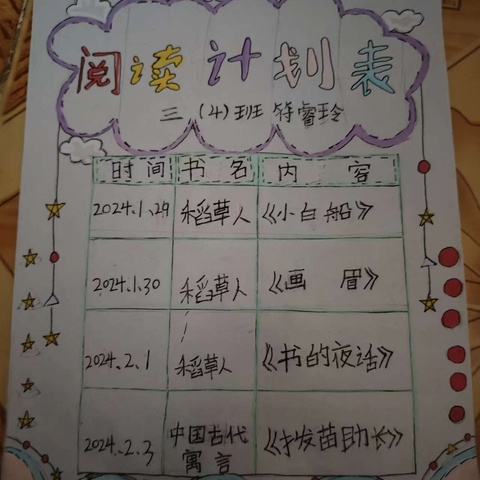 阅读计划表
三（4）班 符睿玲
时间 书名 内容
2024.1.29 稻草人 《小白船》
2024.1.30 稻草人 《画眉》
2024.2.1 稻草人 《书的夜话》
2024.2.3 中国古代寓言 《扌发苗助长》